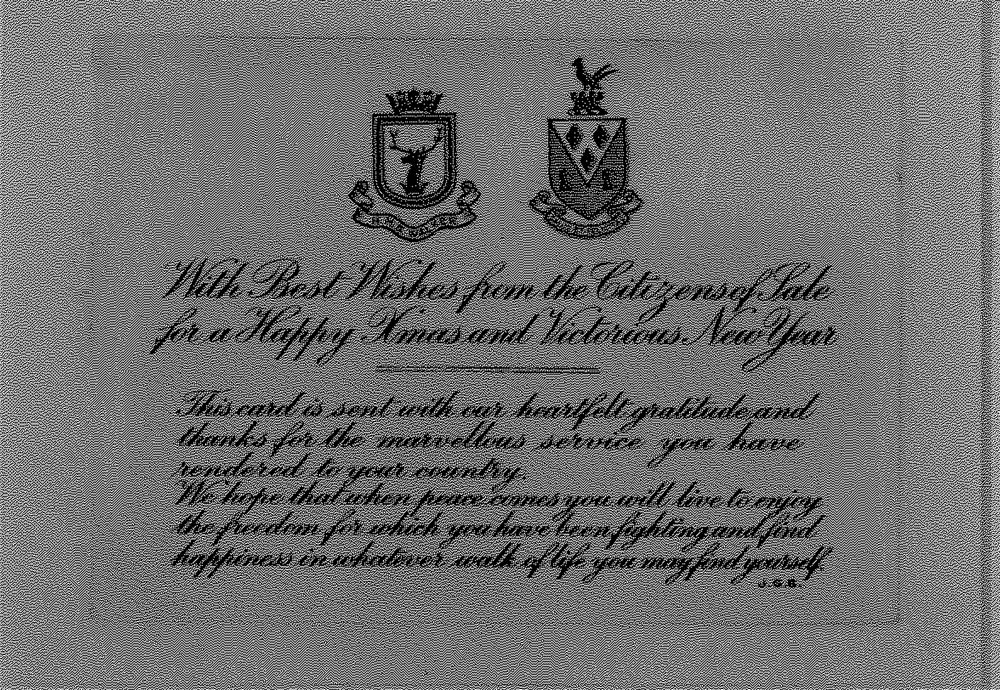 H.M.S. WALKER
With Best Wishes from the Citizens of Sale
for a Happy Xmas and Victorious New Year
This card is sent with our heartfelt gratitude and
thanks for the marvellous service you have
rendered to your country.
We hope that when peace comes you will live to enjoy
the freedom for which you have been fighting and find
happiness in whatever walk of life you may find yourself.
J.G.G.